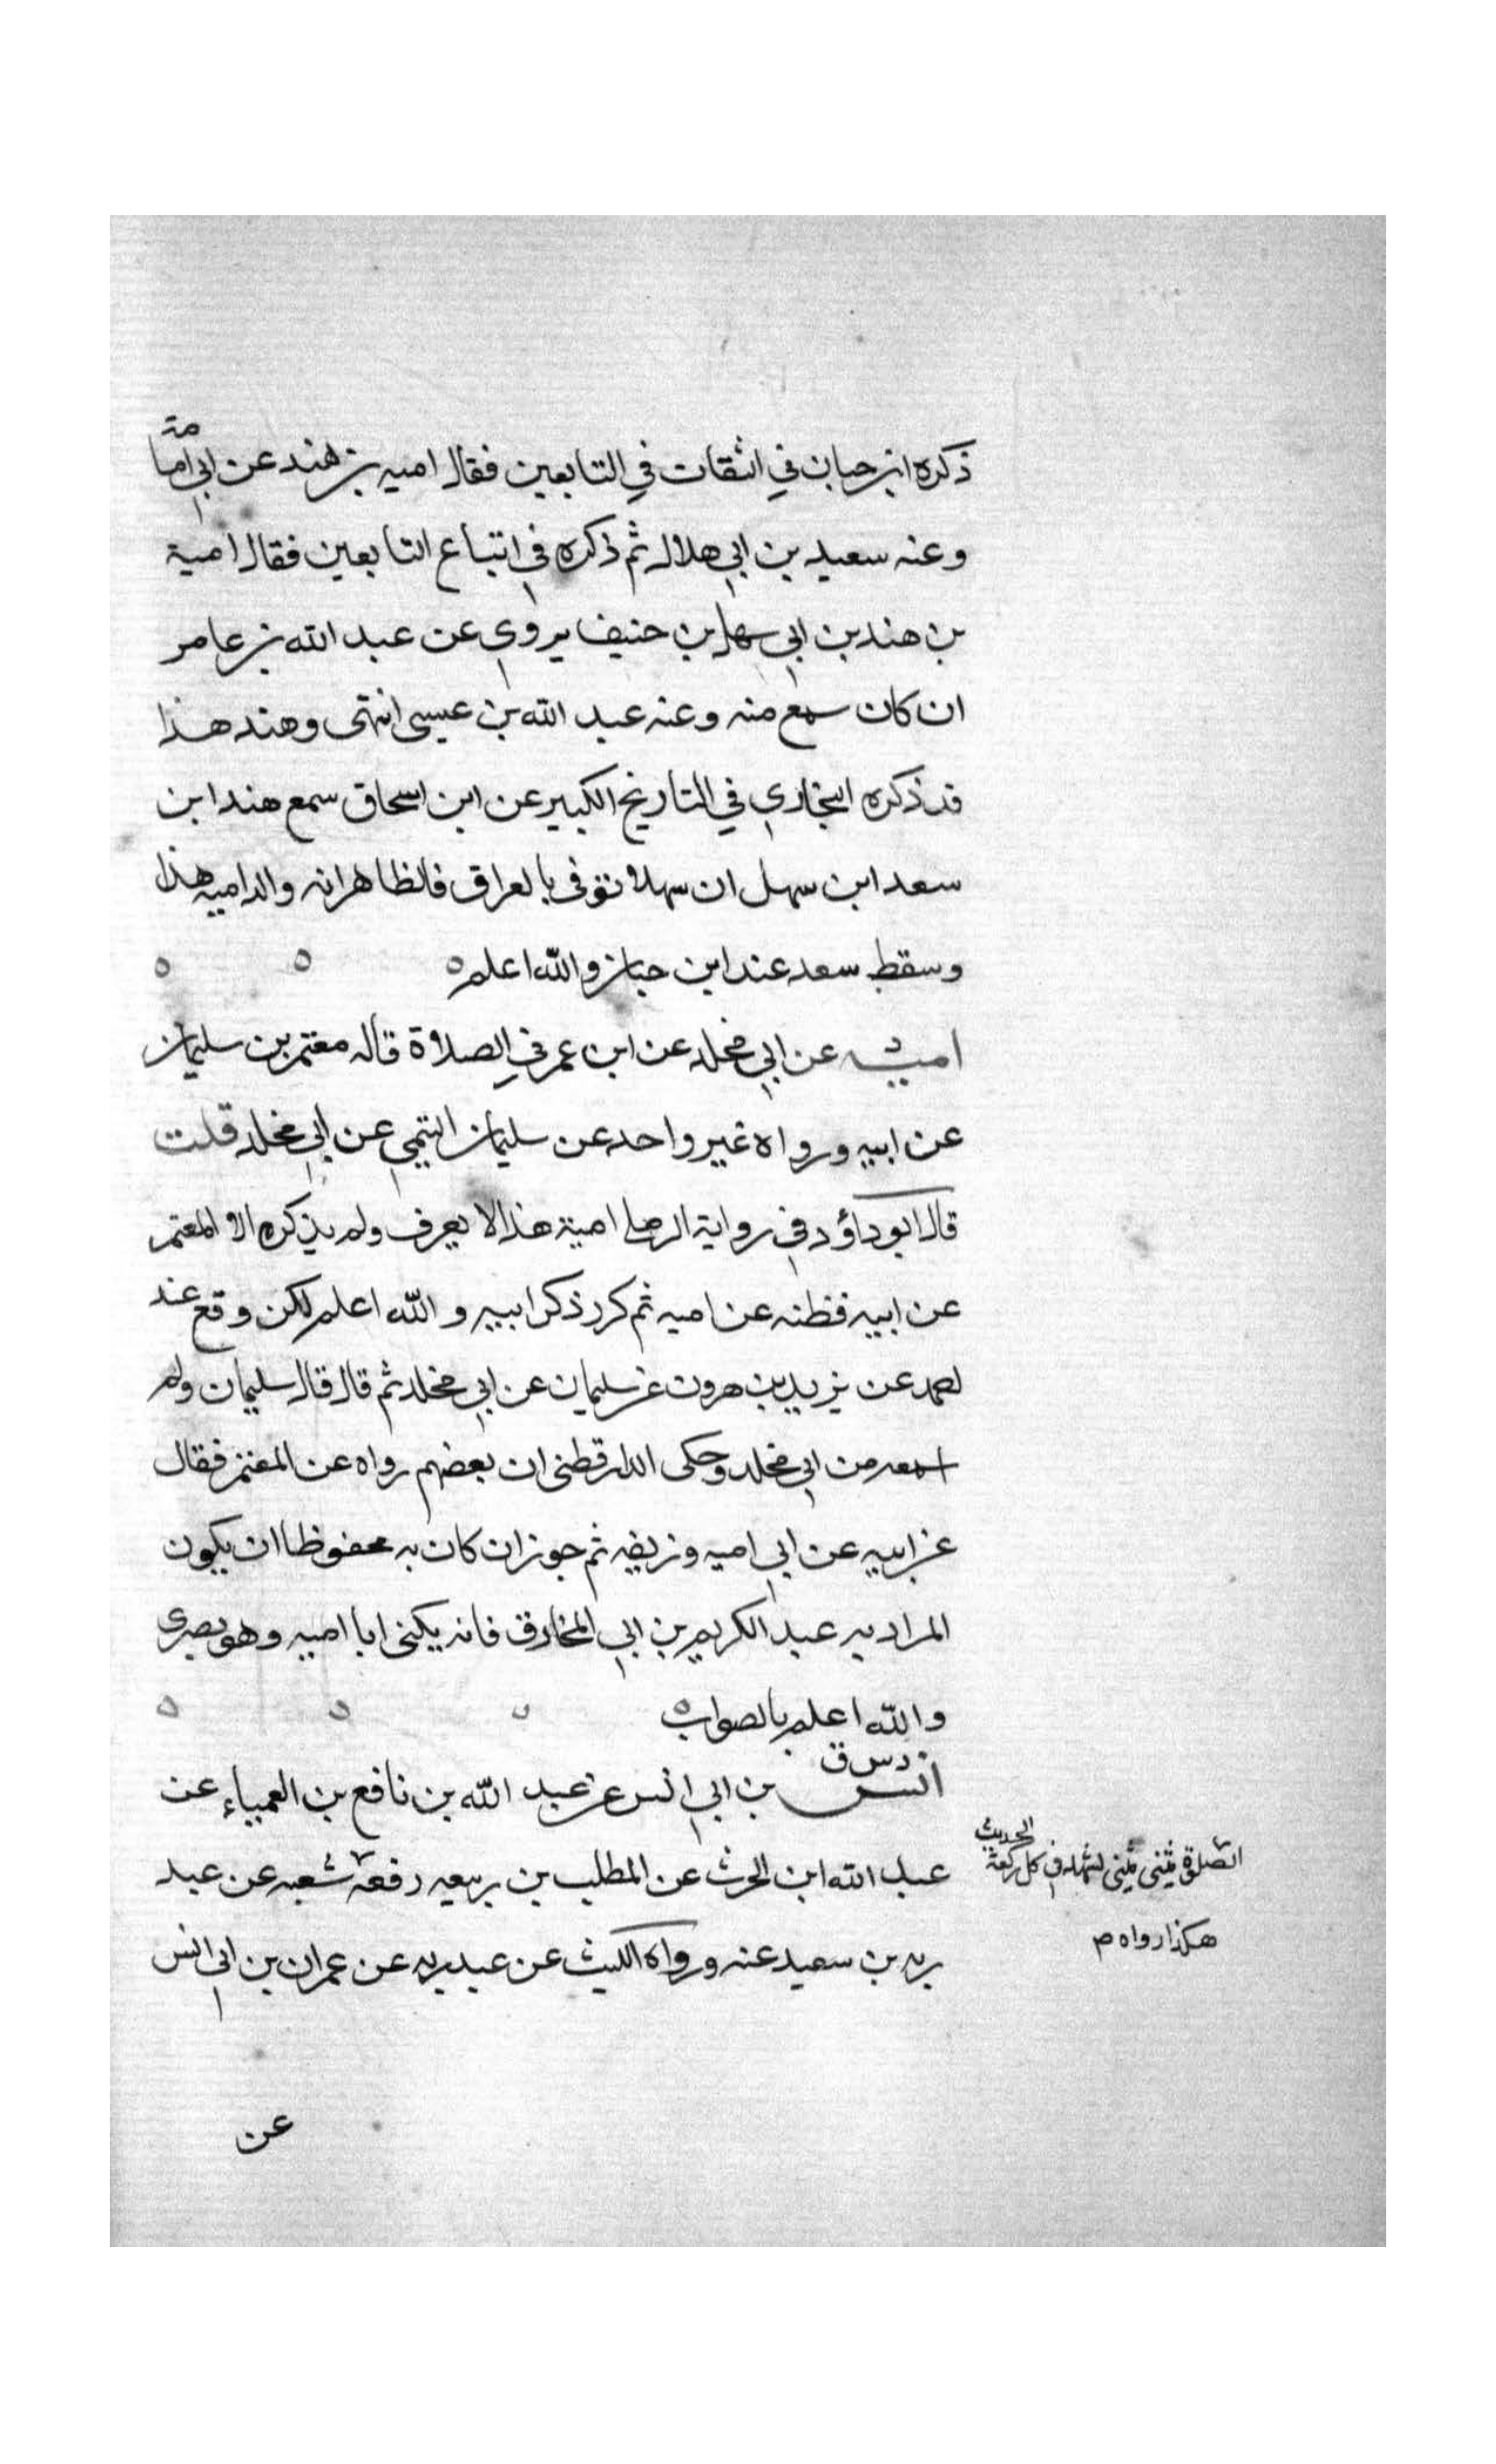 ذكره ابن حبان في الثقات في التابعين فقال اميه بن هند عن ابي امامة
وعنه سعيد بن ابي هلال ثم ذكره في اتباع التابعين فقال امية
بن هند بن ابي سهل بن حنيف يروي عن عبد الله بن عامر
ان كان سمع منه وعنه عبد الله بن عيسى انتهى وهند هذا
قد ذكره البخاري في التاريخ الكبير عن ابن اسحاق سمع هند ابن
سعد ابن سهل ان سهلا توفى بالعراق فالظاهر انه والد اميه هذا
وسقط سعد عند ابن حبان والله اعلم ه ه ه
اميه د عن ابي مخلد عن ابن عمر في الصلاة قاله معتمر بن سليمان
عن ابيه ورواه غير واحد عن سليمان التيمي عن ابي مخلد قلت
قال ابو داؤد في رواية الرملي امية هذا لا يعرف ولم يذكره الا المعتمر
عن ابيه فظنه عن اميه ثم كرر ذكر ابيه والله اعلم لكن وقع عند
احمد عن يزيد بن هرون عن سليمان عن ابي مخلد ثم قال قال سليمان ولم
اسمعه من ابي مخلد وحكى الدارقطني ان بعضهم رواه عن المعتمر فقال
عن ابيه عن ابي اميه وزيفه ثم جوز ان كان به محفوظا ان يكون
المراد به عبد الكريم بن ابي المخارق فانه يكنى ابا اميه وهو بصرى
والله اعلم بالصواب ه ه ه ه
د س ق
انس بن ابي انس عن عبد الله بن نافع بن العمياء عن
عبد الله ابن الحرث عن المطلب بن ربيعه رفعه شعبه عن عبد
ربه بن سعيد عنه ورواه الليث عن عبد ربه عن عمران بن ابي انس
الصلوة مثنى مثنى تشهد في كل ركعة الحديث
هكذا رواه م
عن